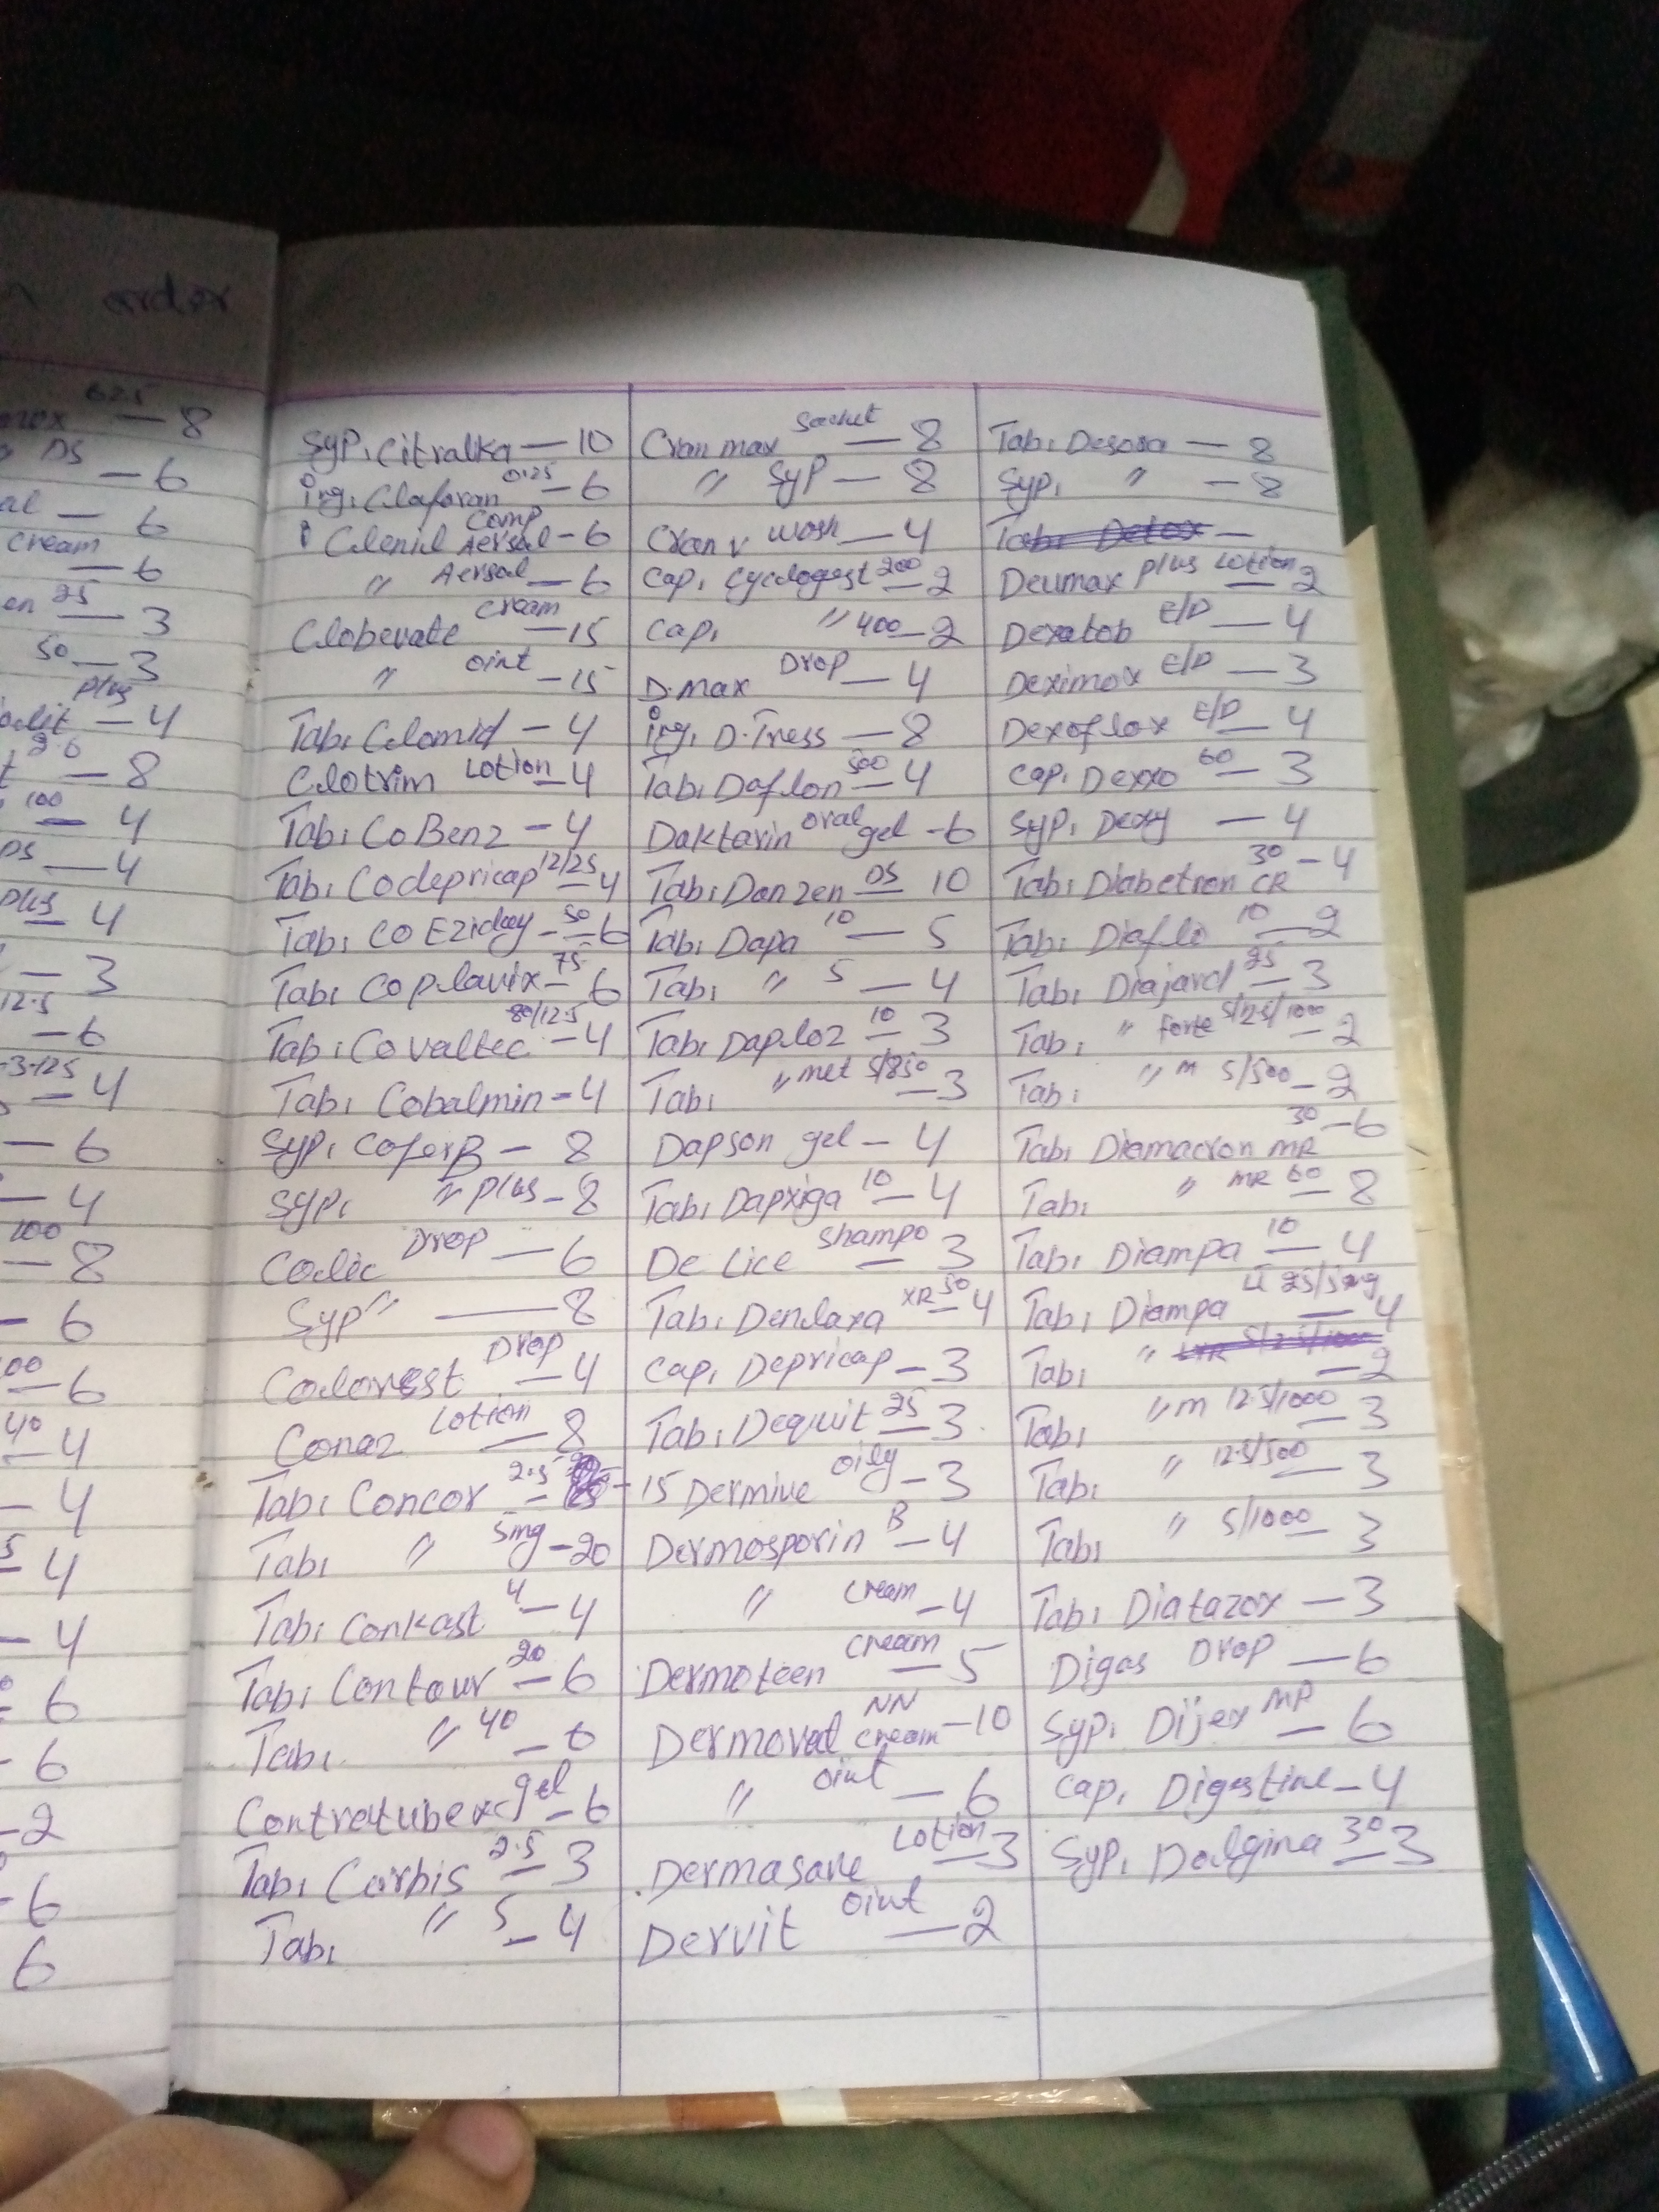 order
625
— 8
DS
— 6
— 6
cream
— 6
25
— 3
50
— 3
plus
— 4
— 8
100
— 4
DS
— 4
plus
— 4
— 3
12.5
— 6
— 4
— 6
— 4
100
— 8
— 6
— 6
40
— 4
— 4
— 4
— 4
6
- 6
- 2
- 6
6
Syp, Citralka — 10
inj, Claforan 0.25 — 6
Clenil Comp Aersal — 6
" Aersal — 6
Clobevate cream — 15
" oint — 15
Tab, Clomid — 4
Clotrim Lotion — 4
Tab, CoBenz — 4
Tab, Codepricap 12/25 — 4
Tab, CO Eziday 50 — 6
Tab, Coplavix 75 — 6
Tab, Covaltec 80/12.5 — 4
Tab, Cobalmin — 4
Syp, CoferB — 8
Syp, " plus — 8
Colic Drop — 6
Syp " — 8
Colorest Drop — 4
Conaz Lotion — 8
Tab, Concor 2.5 — 15
Tab, " 5mg — 20
Tab, Conkast 4 — 4
Tab, Contour 20 — 6
Tab, " 40 — 6
Contratubex gel — 6
Tab, Corbis 2.5 — 3
Tab, " 5 — 4
Cran max Sachet — 8
" Syp — 8
Cran v wosh — 4
Cap, Cycologest 200 — 2
Cap, " 400 — 2
D.max Drop — 4
inj, D.Tress — 8
Tab, Daflon 500 — 4
Daktarin oral gel — 6
Tab, Danzen DS — 10
Tab, Dapa 10 — 5
Tab, " 5 — 4
Tab, Daploz 10 — 3
Tab, " met 5/850 — 3
Dapson gel — 4
Tab, Dapxiga 10 — 4
De Lice shampo — 3
Tab, Denlaxa XR 50 — 4
Cap, Depricap — 3
Tab, Dequit 25 — 3
Dermive oily — 3
Dermosporin B — 4
" cream — 4
Dermoteen cream — 5
Dermovat NN cream — 10
" oint — 6
Dermasave Lotion — 3
Dervit oint — 2
Tab, Desora — 8
Syp, " — 8
Tab, Detox —
Deumax plus Lotion — 2
Dexatob E/D — 4
Deximox E/D — 3
Dexoflox E/D — 4
Cap, Dexxo 60 — 3
Syp, Dexy — 4
Tab, Diabetron 30 CR — 4
Tab, Diaflo 10 — 2
Tab, Diajard 25 — 3
Tab, " forte 5/25/1000 — 2
Tab, " m 5/500 — 2
Tab, Diamacron MR 30 — 6
Tab, " MR 60 — 8
Tab, Diampa 10 — 4
Tab, Diampa Li 25/5mg — 4
Tab, " — 2
Tab, " m 12.5/1000 — 3
Tab, " 12.5/500 — 3
Tab, " 5/1000 — 3
Tab, Diatazox — 3
Digas Drop — 6
Syp, Dijex MP — 6
Cap, Digestine — 4
Syp, Dolgina 30 — 3